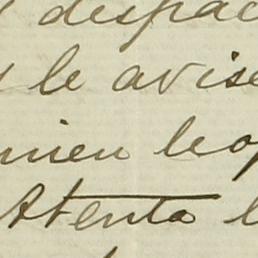 despac
y le avise
nien leop
Atenta l